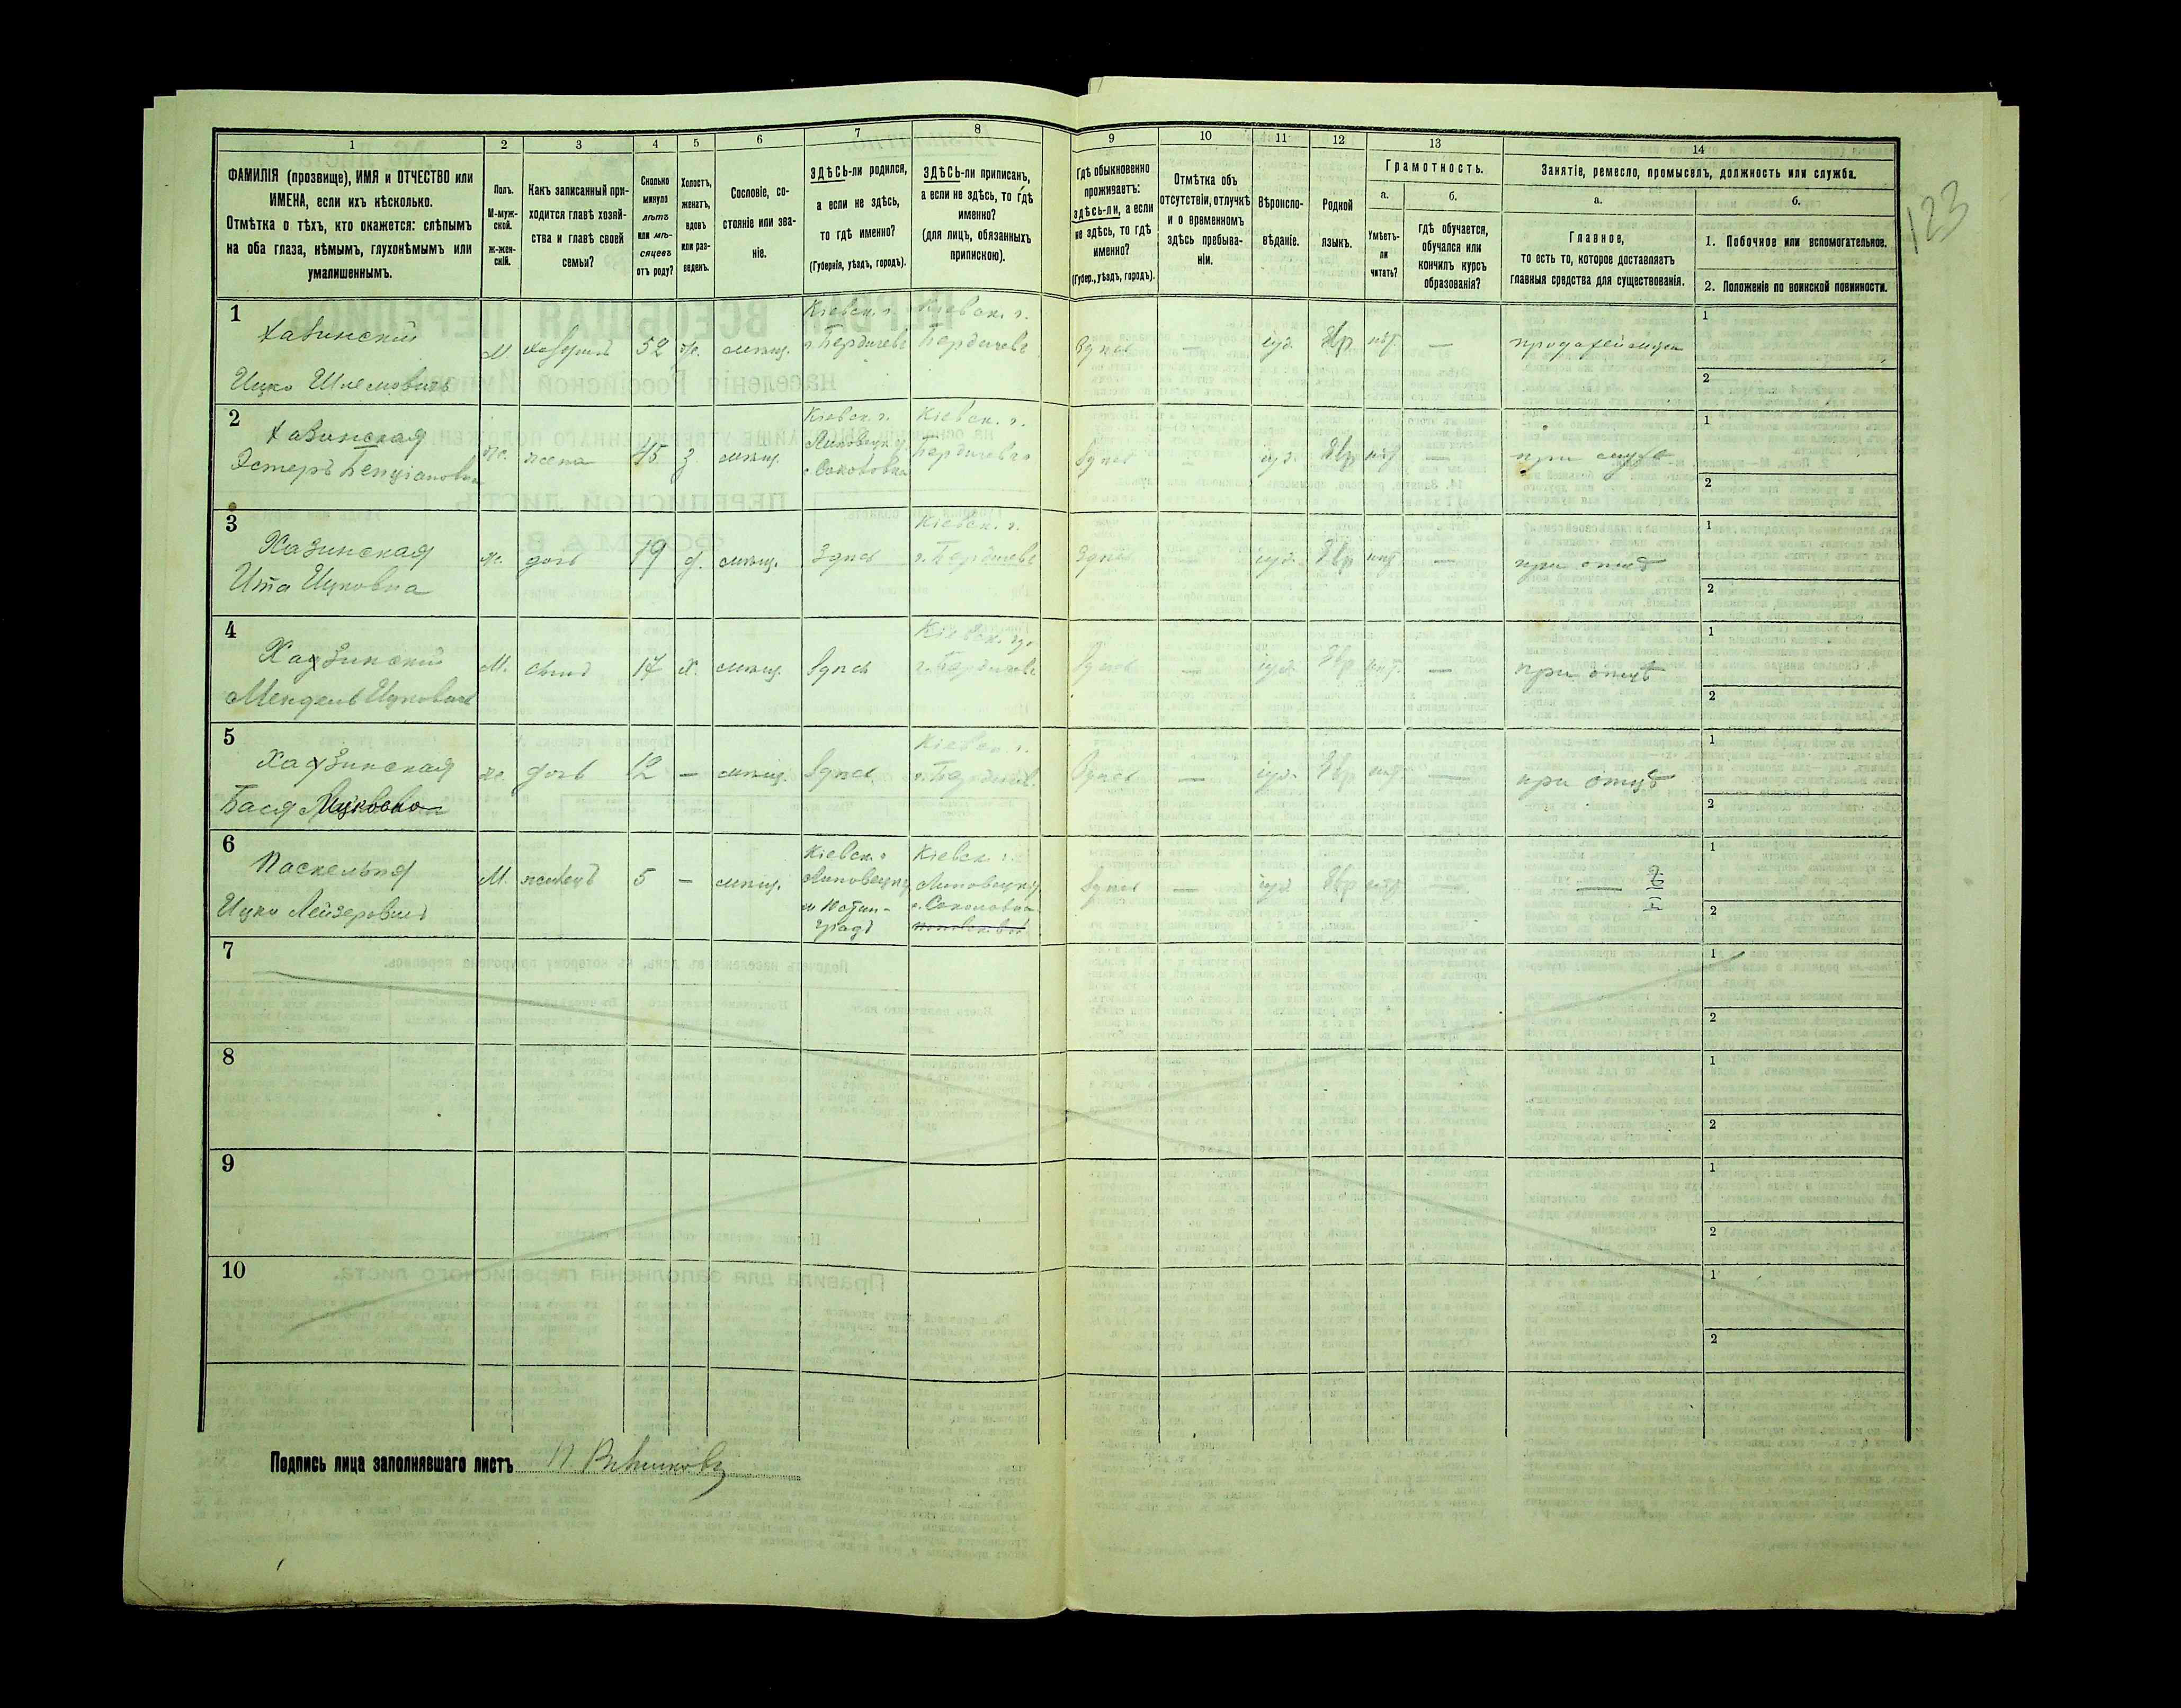 1
2
3
4
5
6
7
8
9
10
11
12
13
14
ФАМИЛІЯ (прозвище), ИМЯ и ОТЧЕСТВО или
ИМЕНА, если ихъ нѣсколько.
Отмѣтка о тѣхъ, кто окажется: слѣпымъ
на оба глаза, нѣмымъ, глухонѣмымъ или
умалишеннымъ.
Полъ.
М-муж-
ской.
ж-жен-
скій.
Какъ записанный при-
ходится главѣ хозяй-
ства и главѣ своей
семьи?
Сколько
минуло
лѣтъ
или мѣ-
сяцевъ
отъ роду?
Холостъ,
женатъ,
вдовъ
или раз-
веденъ.
Сословіе, со-
стояніе или зва-
ніе.
ЗДѢСЬ-ли родился,
а если не здѣсь,
то гдѣ именно?
(Губернія, уѣздъ, городъ).
ЗДѢСЬ-ли приписанъ,
а если не здѣсь, то гдѣ
именно?
(для лицъ, обязанныхъ
припискою).
Гдѣ обыкновенно
проживаетъ:
здѣсь-ли, а если
не здѣсь, то гдѣ
именно?
(Губер., уѣздъ, городъ).
Отмѣтка объ
отсутствіи, отлучкѣ
и о временномъ
здѣсь пребыва-
ніи.
Вѣроиспо-
вѣданіе.
Родной
языкъ.
Грамотность.
а.
Умѣетъ-
ли
читать?
б.
гдѣ обучается,
обучался или
кончилъ курсъ
образованія?
Занятіе, ремесло, промыселъ, должность или служба.
а.
Главное,
то есть то, которое доставляетъ
главныя средства для существованія.
б.
1. Побочное или вспомогательное.
2. Положеніе по воинской повинности.
123
1
Хазинскій
Ицко Шлемовичъ
М
52
ж.
мѣщ.
Кіевск. г.
г. Бердичевъ
Кіевск. г.
Бердичевъ
Здѣсь
—
іуд.
Евр
нѣт
—
1
2
2
Хазинская
Эстеръ Бенціановна
ж.
жена
45
з
мѣщ.
Кіевск. г.
Липовецк у
с Соколовка
Кіевск. г.
Бердичевъ
Здѣсь
—
іуд.
Евр
нѣт
—
при мужѣ
1
2
3
Хазинская
Ита Ицковна
ж.
дочь
19
д.
мѣщ.
Здѣсь
Кіевск. г.
г. Бердичевъ
Здѣсь
—
іуд.
Евр
нѣт
—
при отцѣ
1
2
4
Хазинскій
Мендель Ицковичъ
М.
сынъ
17
Х.
мѣщ.
Здѣсь
Кіевск. гу.
г. Бердичевъ
Здѣсь
—
іуд.
Евр
нѣт.
—
при отцѣ
1
2
5
Хазинская
Бася Ицковна
ж.
дочь
12
—
мѣщ.
Здѣсь
Кіевск. г.
г. Бердичев.
Здѣсь
—
іуд.
Евр
нѣт
—
при отцѣ
1
2
6
Ицко Лейзеровичъ
М.
5
—
мѣщ.
Кіевск. г
Липовецк у
м Юстин-
градъ
Кіевск. г.
Липовецк у
с. Соколовка
Здѣсь
—
іуд.
Евр
нѣт
—
—
1
2
7
1
2
8
1
2
9
1
2
10
1
2
Подпись лица заполнявшаго листъ